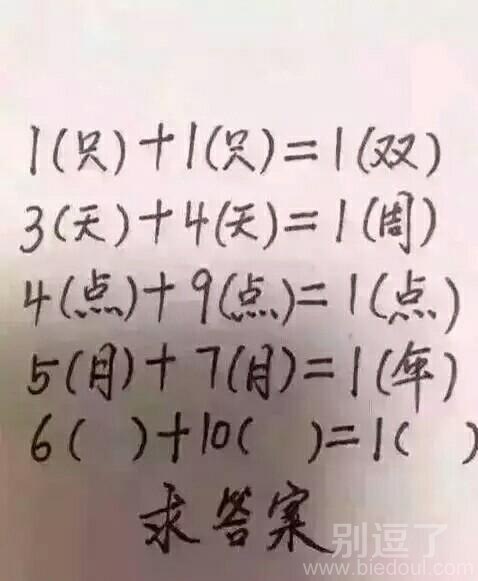 1(只)+1(只)=1(双)
3(天)+4(天)=1(周)
4(点)+9(点)=1(点)
5(月)+7(月)=1(年)
6( )+10( )=1( )
求答案
别逗了
www.biedoul.com